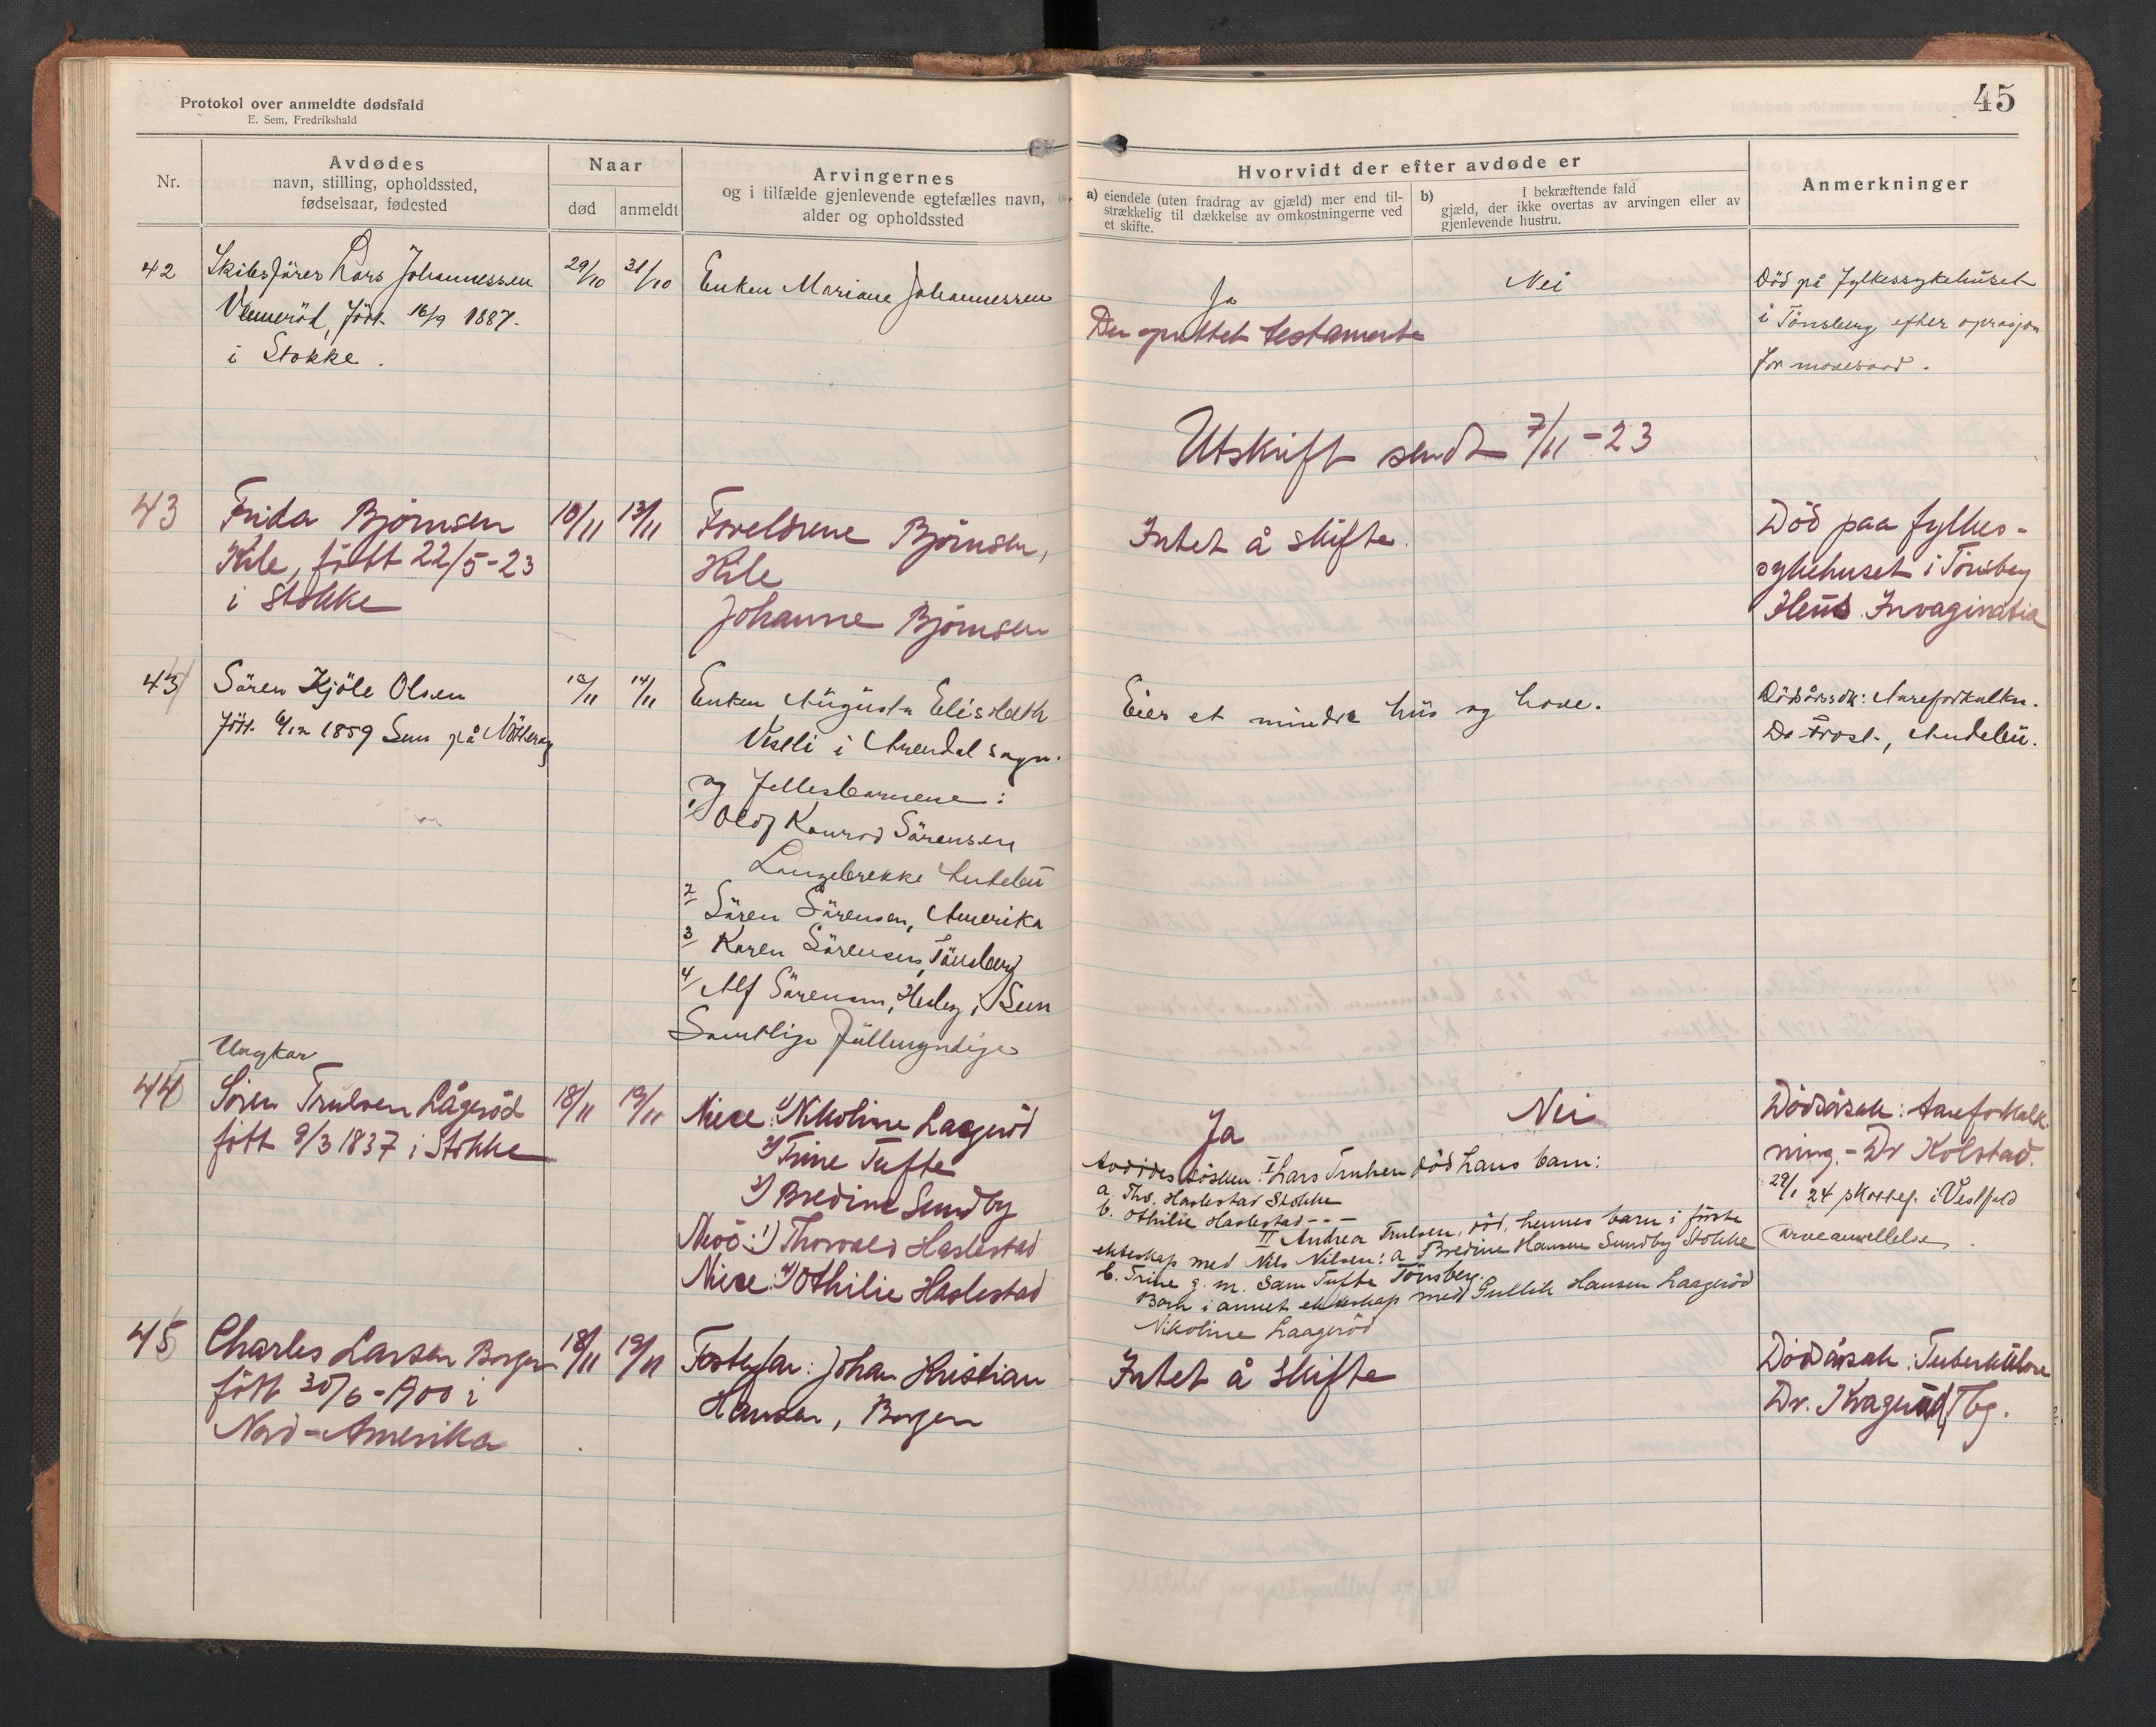 Protokol over anmeldte dødsfald
E. Sem, Fredrikshald
45
Nr.
Avdødes
navn, stilling, opholdssted,
fødselsaar, fødested
Naar
død
anmeldt
Arvingernes
og i tilfælde gjenlevende egtefælles navn,
alder og opholdssted
Hvorvidt der efter avdøde er
a) eiendele (uten fradrag av gjæld) mer end til-
strækkelig til dækkelse av omkostningerne ved
et skifte.
b) I bekræftende fald
gjæld, der ikke overtas av arvingen eller av
gjenlevende hustru.
Anmerkninger
42
Skibsförer Lars Johannessen
Venneröd, födt 16/9 1887.
i Stokke.
29/10
31/10
Enken Mariane Johannessen
Ja
Der oprettet testamente
Nei
Död på fylkessykehuset
i Tönsberg efter oprasjon
for mavesaar.
Utskrift sendt 7/11-23
43
Frida Björnsen
Hile, födt 22/5-23
i Stokke
10/11
13/11
Foreldrene Björnsen,
Hile
Johanne Björnsen
Intet å skifte.
Död paa fylkes-
sykehuset i Tönsberg
Ileus Invaginatia
43
Sören Kjöle Olsen
födt. 6/12 1859 Sem på Nötteröy
12/11
14/11
Enken Augusta Elisabeth
Vestli i Arendal sogn.
og fellesbarnene:
1/ Olaf Konrad Sörensen
Langebrekke Andebu
2/ Sören Sörensen, Amerika
3/ Karen Sörensen, Tönsberg
4/ Alf Sörensen, Hesby i Sem
Samtlige füllmyndige
Eier et mindre hus og have.
Dödsårsak: Aareforkalkn.
Dr Frost, Andebu.
44
Ungkar
Sören Trulsen Lågeröd
födt 9/3 1837 i Stokke
18/11
19/11
Niese: 1) Nikoline Laageröd
2) Trine Tufte
3) Bredine Sundby
Nevö: 1) Thorvald Haslestad
Niese: 4) Othilie Haslestad
Ja
Nei
Avdödes södsken: I Lars Trulsen död hans barn:
a. Thv. Haslestad Stokke
b. Othilie Haslestad - - -
II Andrea Trulsen, död, hennes barn i förste
ekteskap med Nils Nilsen: a Bredine Hansen Sundby Stokke
b. Trine g. m. Sam Tufte Tönsberg.
Barn i annet ekteskap med Gullik Hansen Laageröd
Nikoline Laageröd
Dödsårsak: Aareforkalk-
ning. - Dr Kolstad.
29/1 24 skattef. i Vestfold
arveanmeldelse.
45
Charles Larsen Borgen
födt 30/6-1900 i
Nord-Amerika
18/11
19/11
Fosterfar: Johan Kristian
Hansen, Borgen
Intet å skifte
Dödsårsak: Tuberkülose
Dr. Krageröd, Tbg.